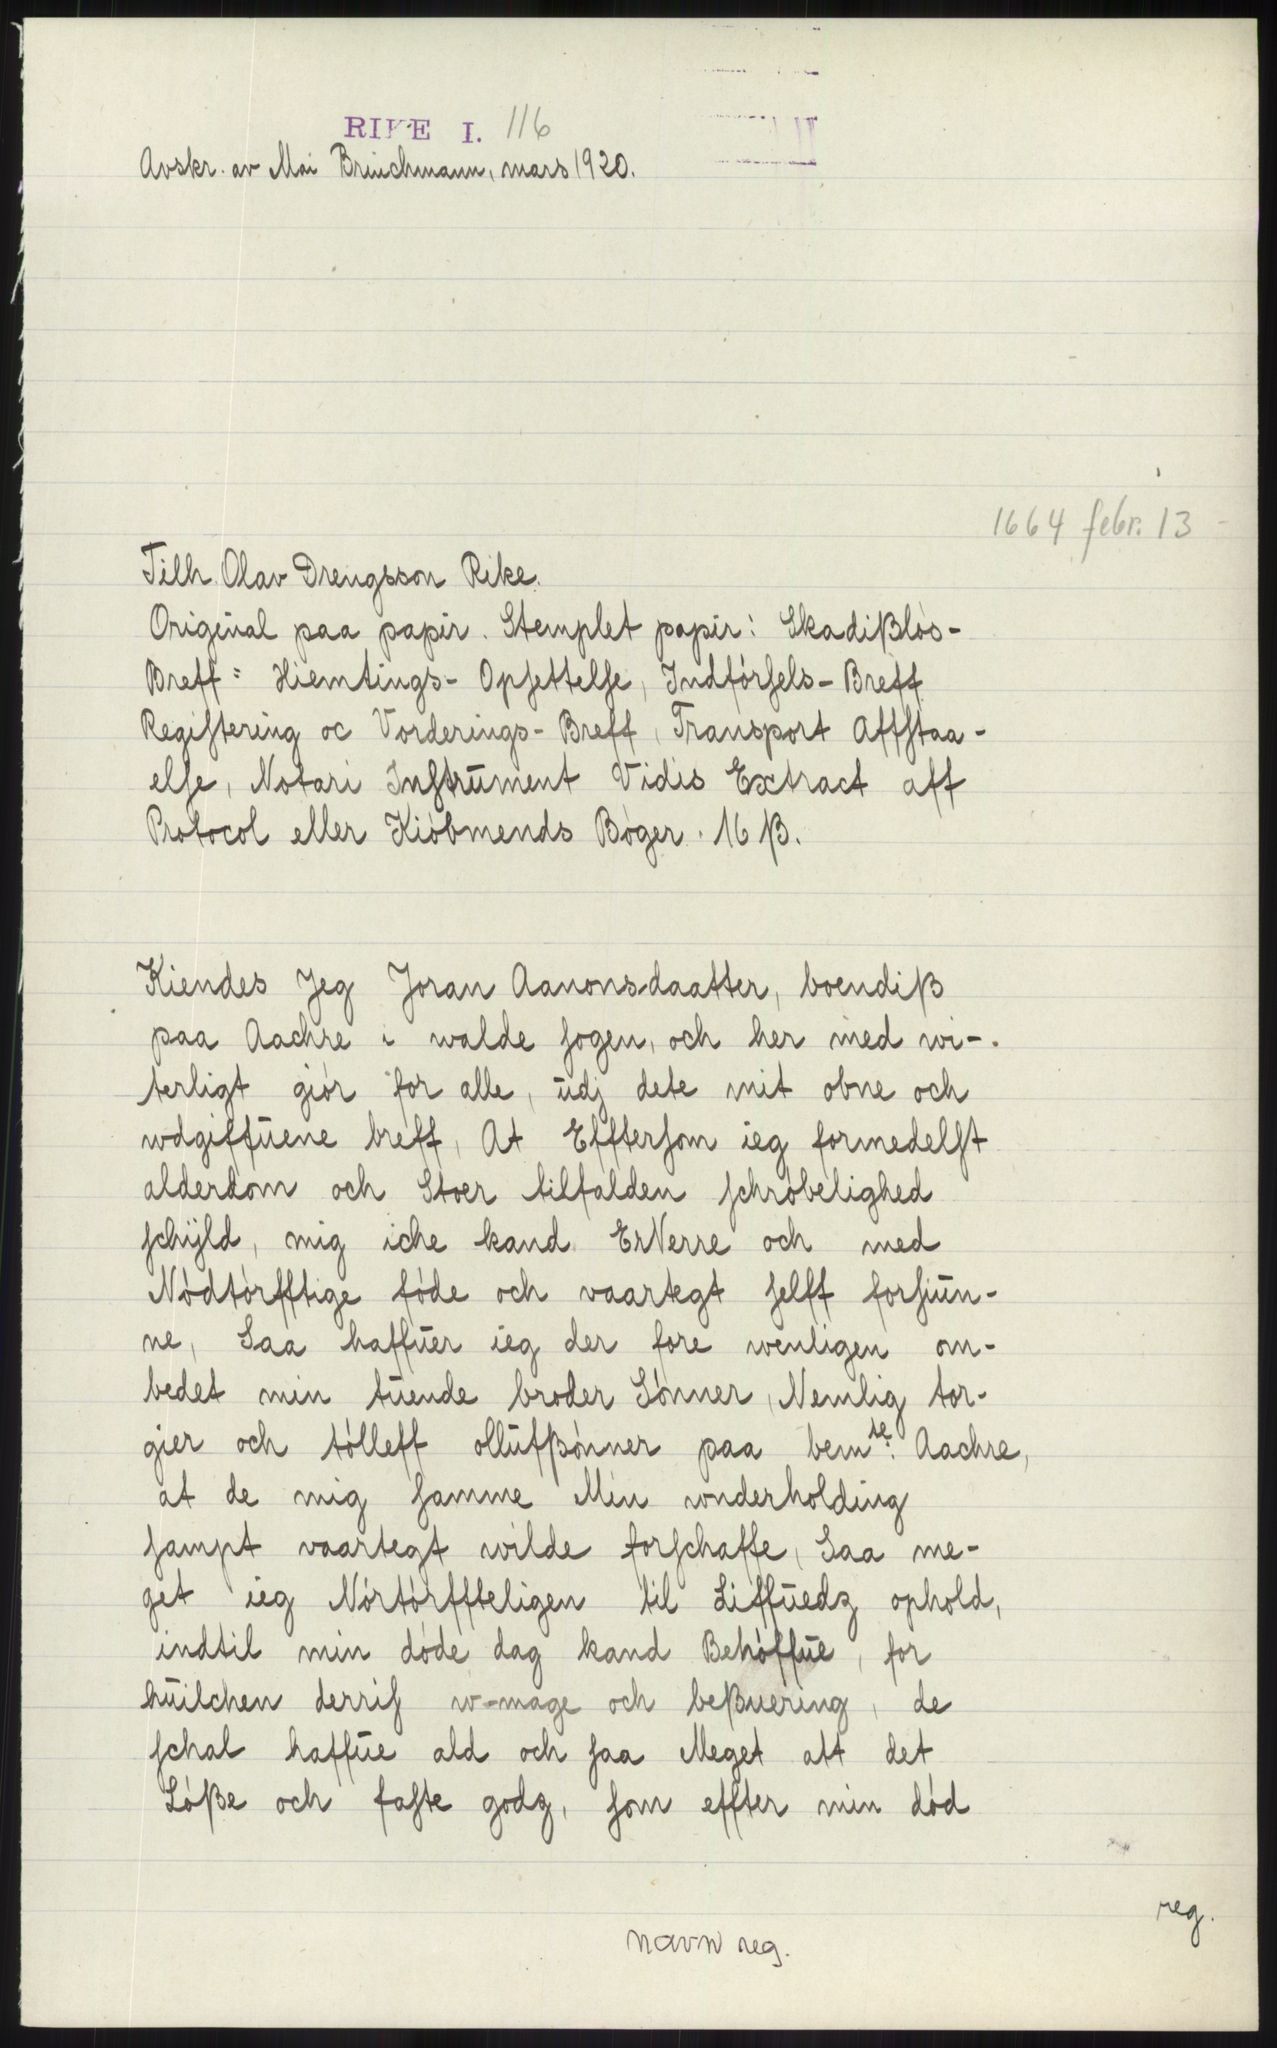 RIKE I. 116
Avskr. av Mai Brinchmann, mars 1920.
1664 febr. 13
Tilh. Olav Drengsson Rike.
Original paa papir. Stemplet papir: Skadißløs-
Breff: Hiemtings- Opsettelse, Indførsels- Breff
Registering oc Vorderings- Breff, Transport Affstaa-
else, Notari Instrument Vidis Extract aff
Protocol eller Kiøbmends Bøger. 16 β.
Kiendes Jeg Joran Aanonsdaatter, boendiß
paa Aachre i walde sogen, och her med wi-
terligt giør for alle, udj dete mit obne och
wdgiffuene breff, At Efftersom ieg formedelst
alderdom och Stoer tilfalden schrøbelighed
schijld, mig iche kand ErNerre och med
Nødtørfftige føde och vaartegt selff forsiun-
ne, Saa haffuer ieg der fore wenligen om-
bedet min tuende broder Sønner, Nemlig tor-
gier och tølleff ollufßønner paa bemte: Aachre,
at de mig samme Min wnderholding
sampt vaartegt wilde forschaffe, Saa me-
get ieg Nørtørffteligen til Liffuedz ophold,
indtil min døde dag kand Behøffue, for
huilchen derris w-mage och beßuering, de
schal haffue ald och saa Meget att det
Løße och faste godz, som effter min død
reg.
navn reg.